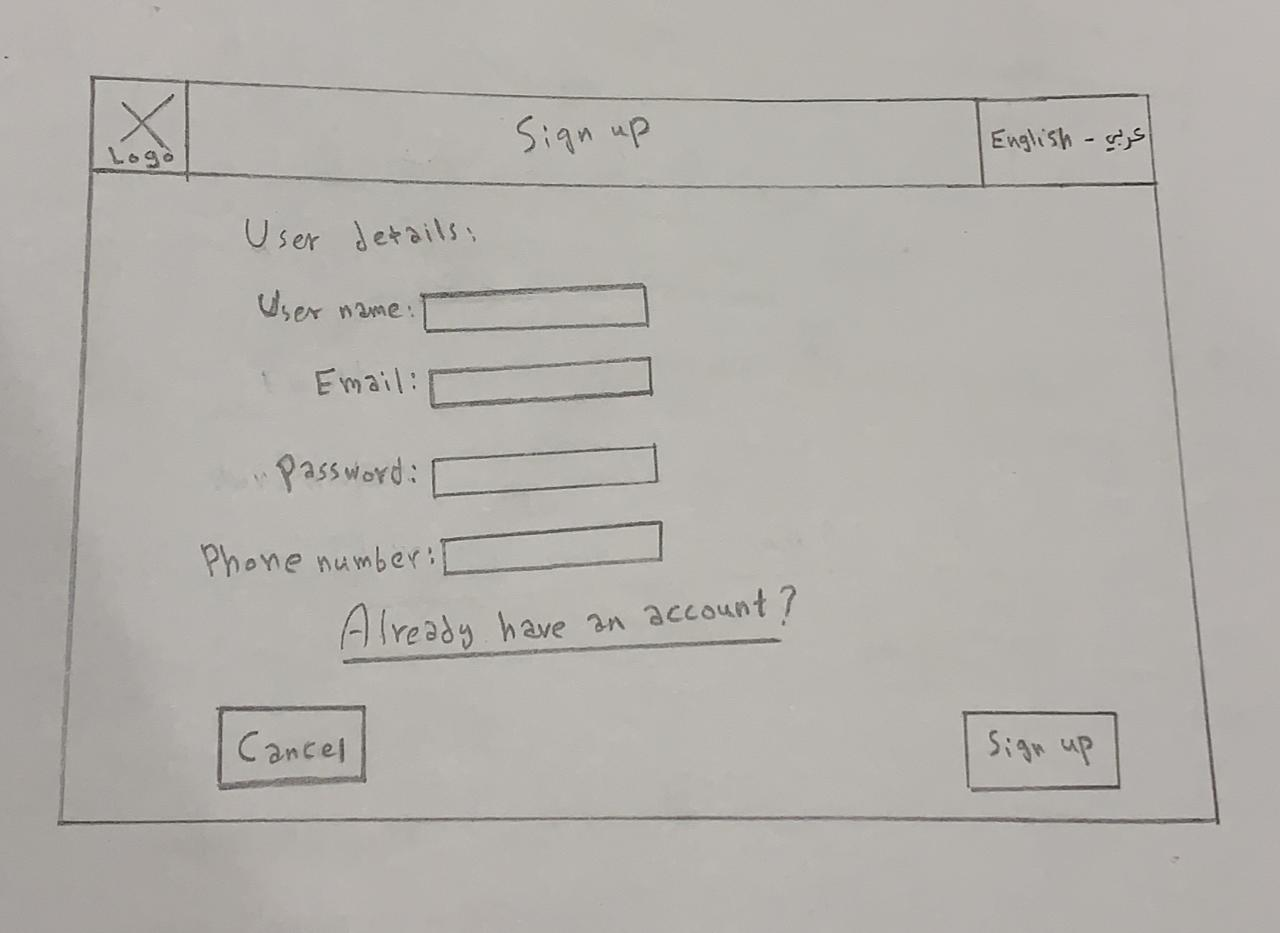 Logo
Sign up
English - عربي
User details:
User name:
Email:
Password:
Phone number:
Already have an account?
Cancel
Sign up